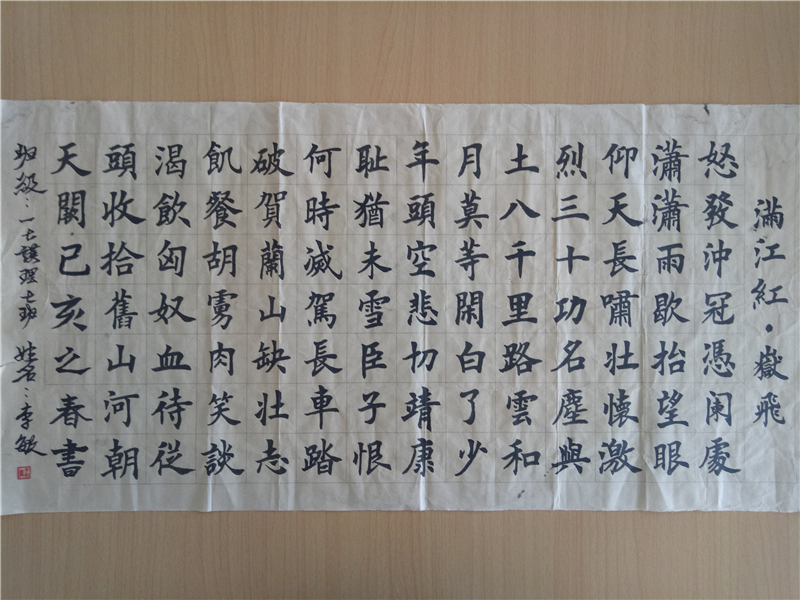 滿江紅·嶽飛
怒發沖冠憑闌處
瀟瀟雨歇抬望眼
仰天長嘯壯懷激
烈三十功名塵與
土八千里路雲和
月莫等閑白了少
年頭空悲切靖康
耻猶未雪臣子恨
何時滅駕長車踏
破賀蘭山缺壯志
飢餐胡虜肉笑談
渴飲匈奴血待從
頭收拾舊山河朝
天闕己亥之春書
班級：一七護理七班 姓名：李敏